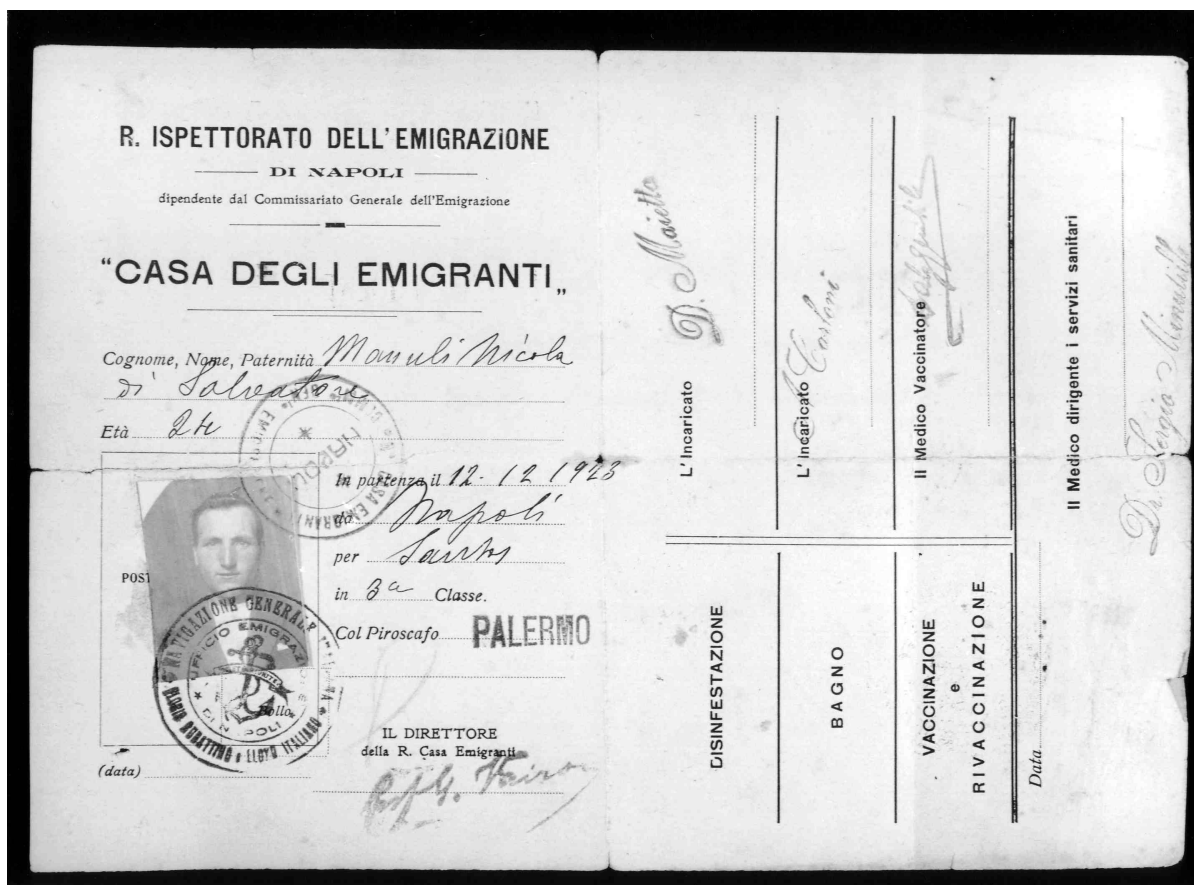 R. ISPETTORATO DELL'EMIGRAZIONE
DI NAPOLI
dipendente dal Commissariato Generale dell'Emigrazione
"CASA DEGLI EMIGRANTI„
Cognome, Nome, Paternità Manuli Nicola
di Salvatore
Età 24
NAPOLI
In partenza il 12-12 1923
da Napoli
per Santos
in 3a Classe.
Col Piroscafo PALERMO
POST
NAVIGAZIONE GENERALE
UFFICIO EMIGRAZIONE
DI NAPOLI
FLORIO RUBATTINO * LLOYD ITALIANO
Bollo
IL DIRETTORE
della R. Casa Emigranti
(data)
L'Incaricato D. Maietta
DISINFESTAZIONE
L'Incaricato
BAGNO
Il Medico Vaccinatore
VACCINAZIONE
e
RIVACCINAZIONE
Il Medico dirigente i servizi sanitari
Dr. Sergio
Data